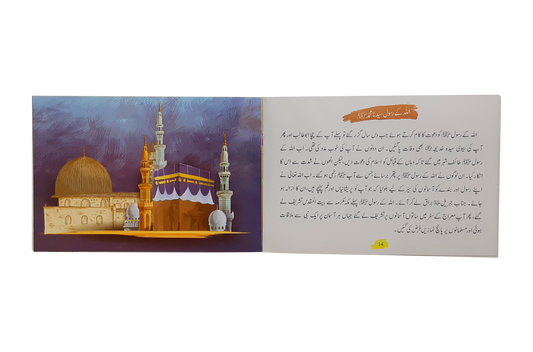 اللہ کے رسول سیدنا محمد ﷺ
اللہ کے رسول ﷺ کو دعوت کا کام کرتے ہوئے جب دس سال گزر گئے تو پہلے آپ کے چچا ابوطالب اور پھر
آپ کی بیوی سیدہ خدیجہ بھی وفات پا گئیں۔ ان دونوں نے آپ کی خوب مدد کی تھی۔ اب اللہ کے
رسول ﷺ طائف شہر میں گئے تاکہ وہاں کے قبائل کو اسلام کی دعوت دیں، لیکن انھوں نے شدت سے اس کا
انکار کیا۔ ان لوگوں نے اللہ کے رسول ﷺ پر پتھر برسائے جس سے آپ زخمی ہو گئے۔ اب اللہ تعالیٰ نے
اپنے رسول اور بندے کو آسمانوں کی سیر کے لیے بلوایا کہ جو آپ کو پریشانیاں اور غم پہنچے ہیں، ان کا ازالہ ہو
جائے۔ جناب جبریل براق لے کر آئے۔ اللہ کے رسول ﷺ پہلے مکہ مکرمہ سے بیت المقدس تشریف لے
گئے، پھر آپ معراج کے سفر میں ساتوں آسمانوں پر تشریف لے گئے جہاں ہر آسمان پر ایک نبی سے ملاقات
ہوئی اور مسلمانوں پر پانچ نمازیں فرض کی گئیں۔
14